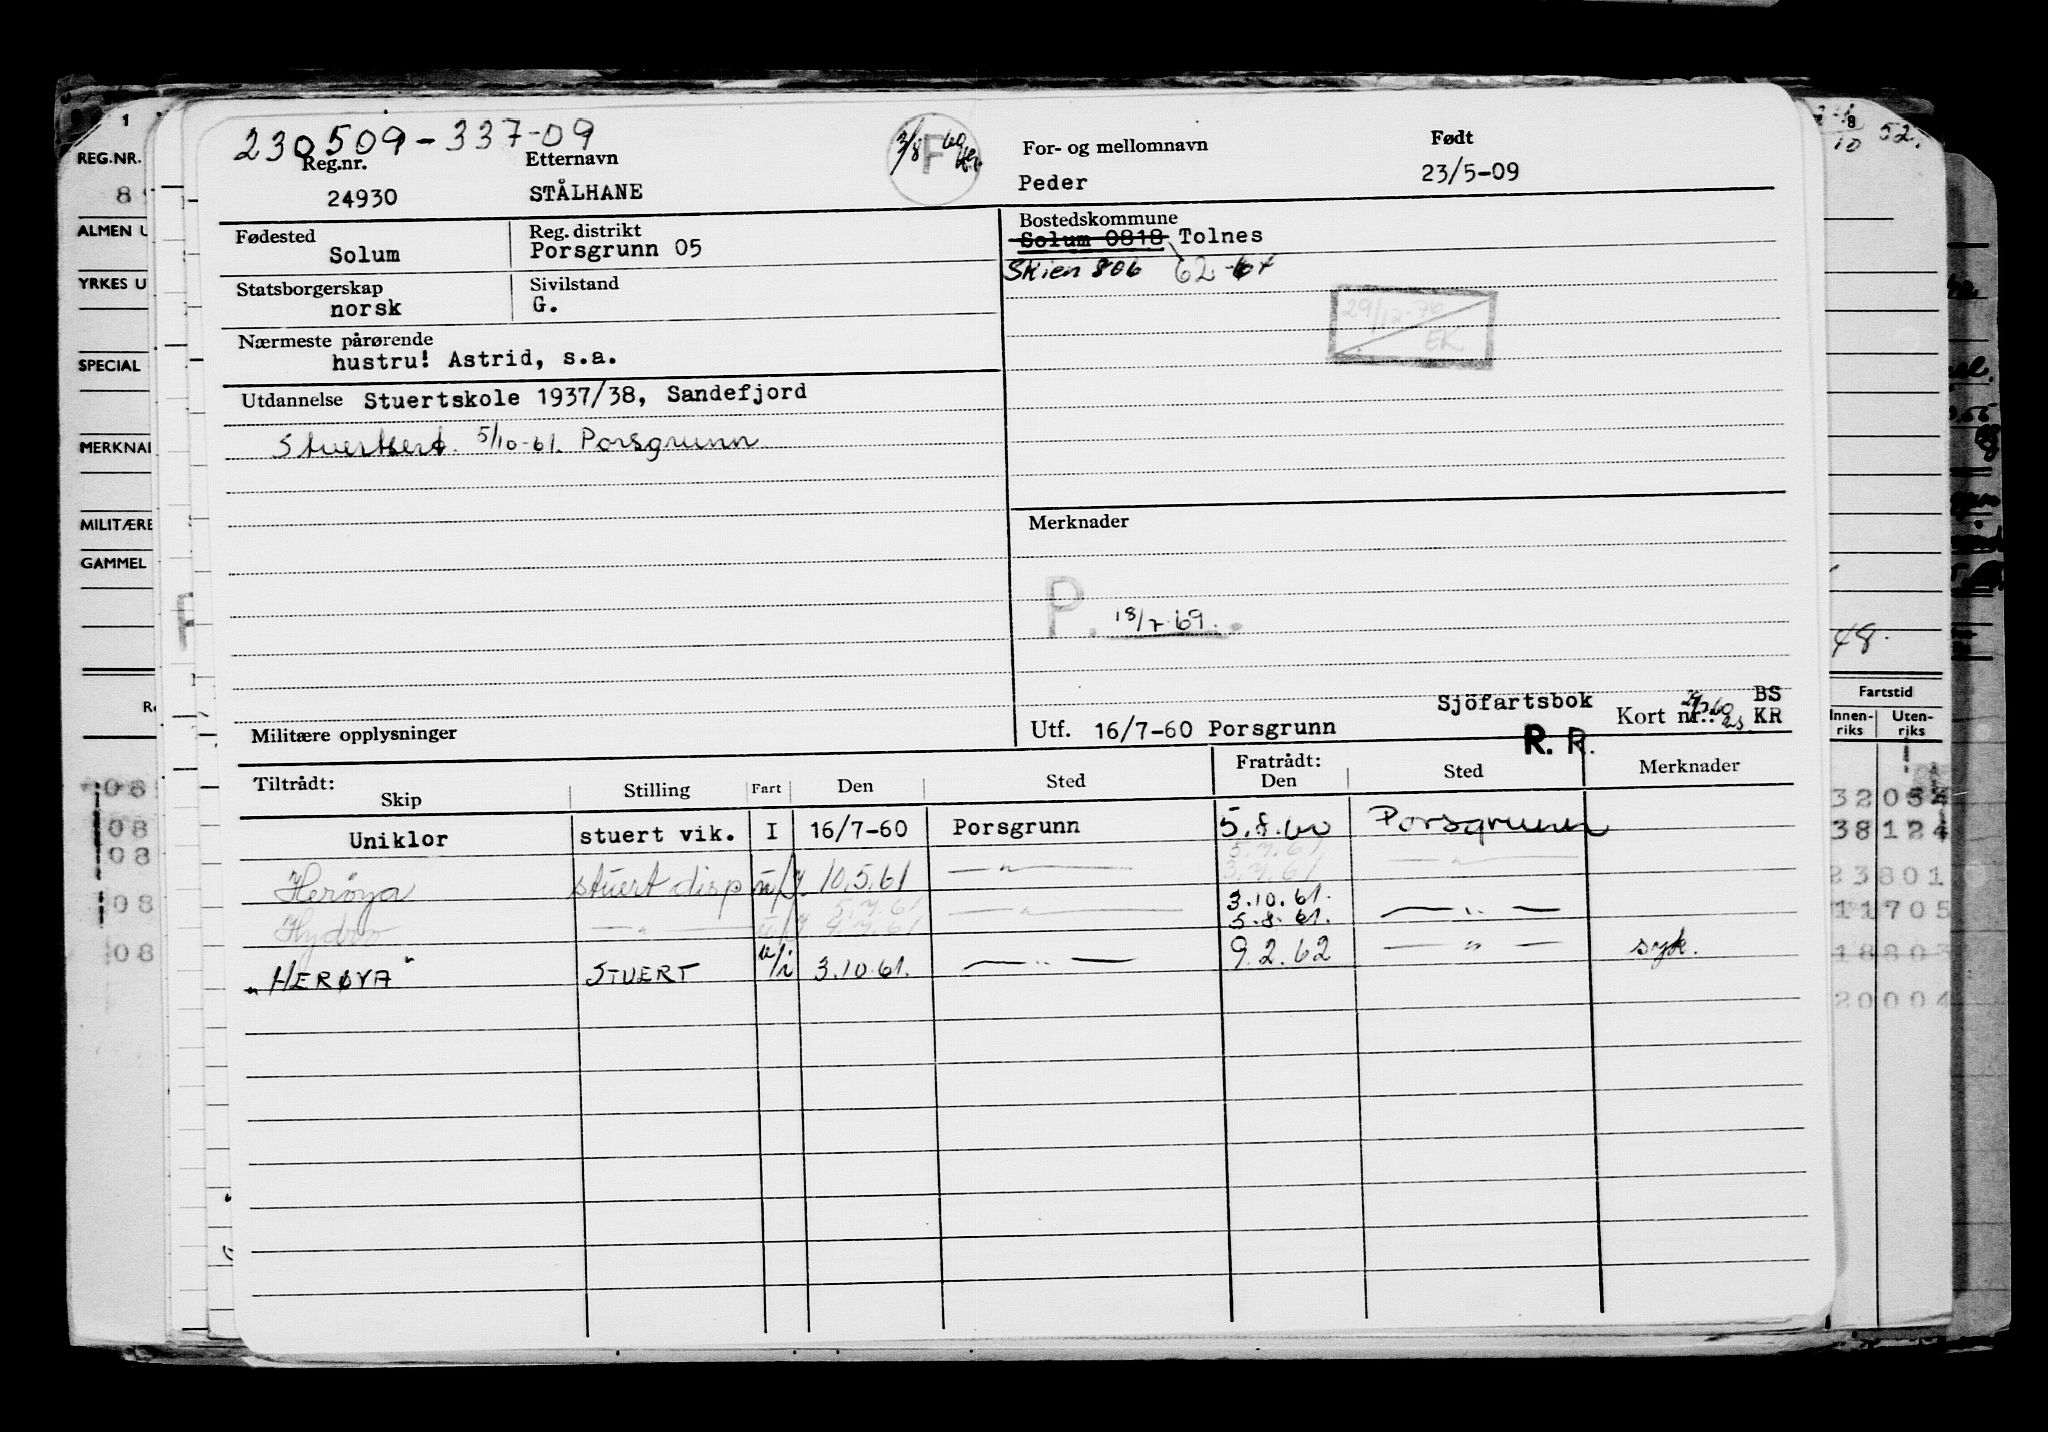 230509-337-09
Reg.nr. Etternavn For- og mellomnavn Født
24930 STÅLHANE F Peder 23/5-09
Fødested Reg. distrikt Bostedskommune
Solum Porsgrunn 05 Solum 0818 Tolnes
Skien 806
Statsborgerskap Sivilstand
norsk G.
29/12-76
EK
Nærmeste pårørende
hustru! Astrid, s.a.
Utdannelse Stuertskole 1937/38, Sandefjord
Stuertsert. 5/10-61. Porsgrunn
Merknader
P. 18/7.69.
Sjöfartsbok BS
Militære opplysninger Utf. 16/7-60 Porsgrunn Kort nr.: KR
R. R.
Tiltrådt: Fratrådt:
Skip Stilling Fart Den Sted Den Sted Merknader
Uniklor stuert vik. I 16/7-60 Porsgrunn 5.8.60 Porsgrunn
5.7.61
Herøya stuert disp u/i 10.5.61 — " — 3.7.61 — " —
3.10.61.
Hydro — " — u/i 5.7.61 — " — 5.8.61. — " —
"HERØYA" STUERT u/i 3.10.61. — " — 9.2.62 — " — syk.
1
REG.NR.
ALMEN U
YRKES U
SPECIAL
MERKNA
MILITÆRE
GAMMEL
08
08
08
08
08
8
10 52.
48.
Fartstid
Innen-riks Uten-riks
38124
23801
11705
18803
20004